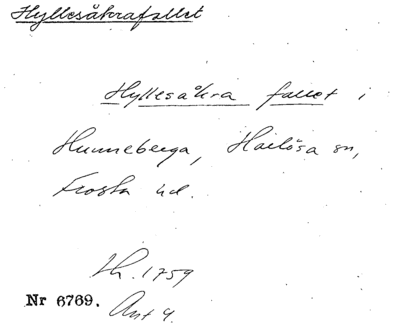 Hyllesåkrafallet
Hyllesåkra fallet i
Hunneberga, Harlösa sn,
Frosta hd.
Lh. 1759
Nr 6769. Ant 4.